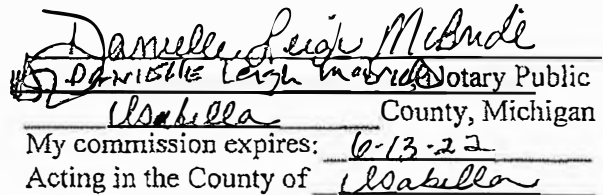 Danielle Leigh McBride
DANIELLE Leigh McBride, Notary Public
Isabella County, Michigan
My commission expires: 6-13-22
Acting in the County of Isabella